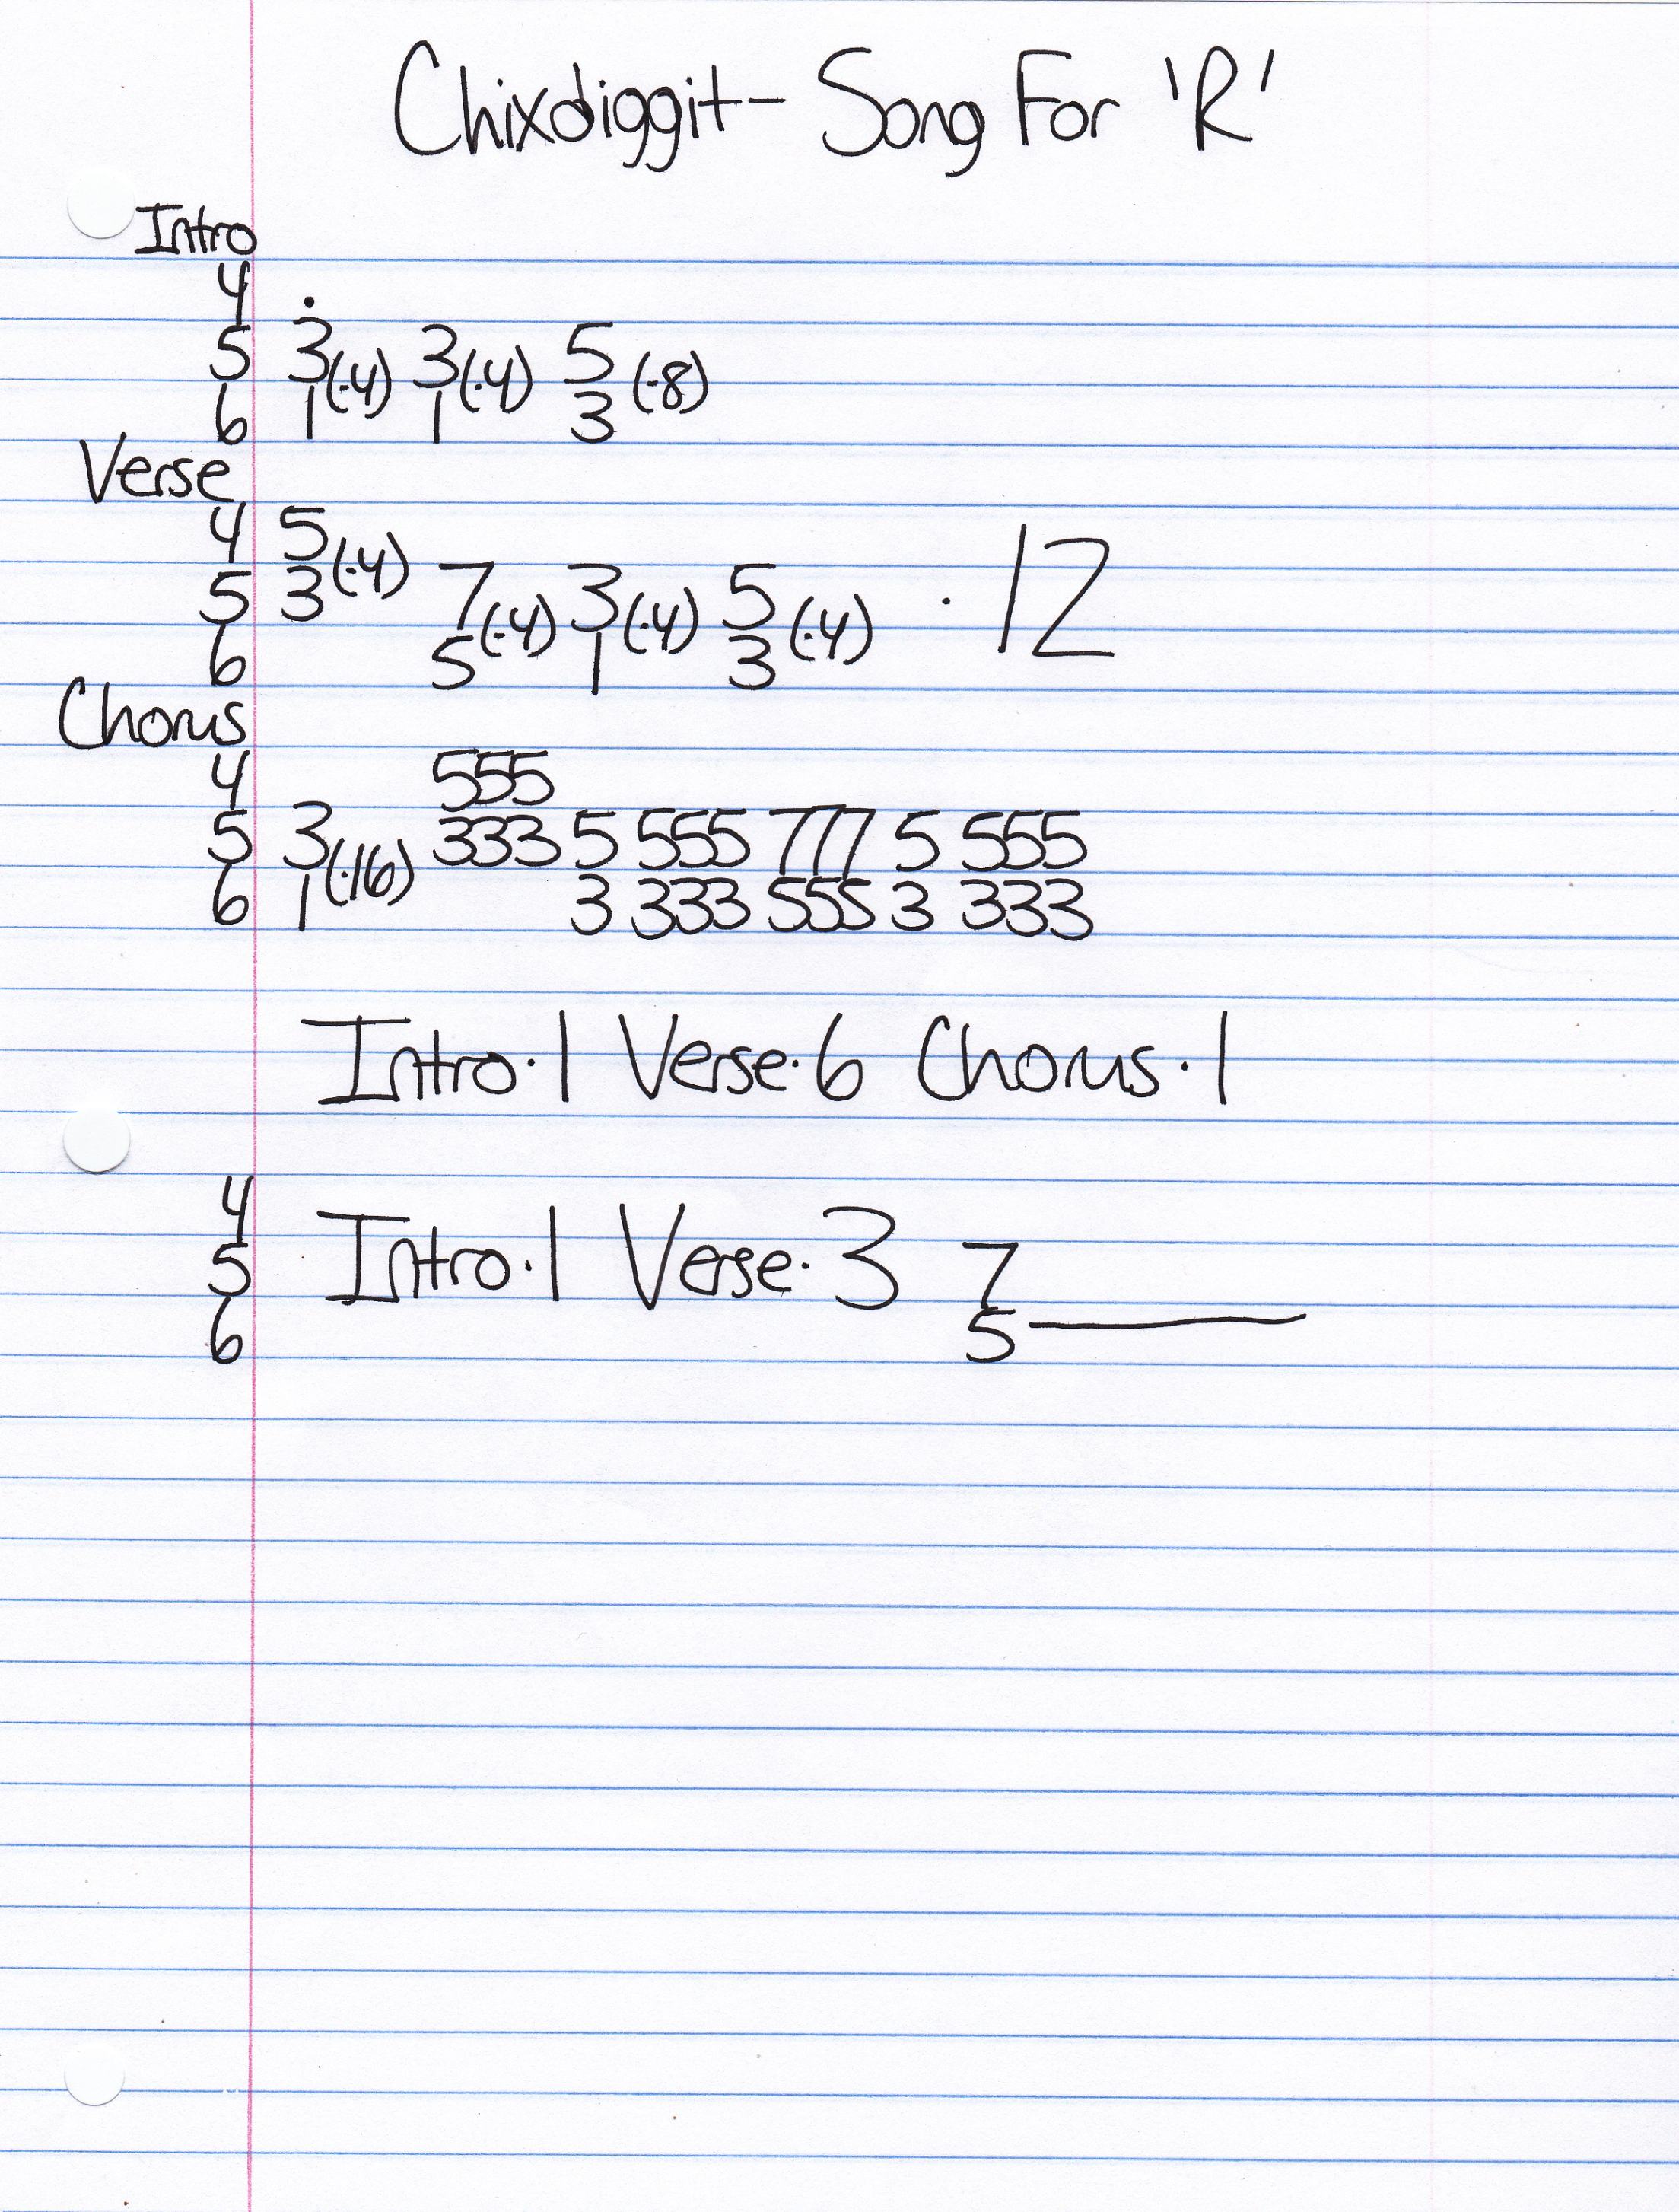 Chixdiggit - Song For 'R'
Intro
4 .
5 3(·4) 3(·4) 5(·8)
6 1 1 3
Verse
4 5(·4)
5 3 7(·4) 3(·4) 5(·4) ·12
6 5 1 3
Chorus
4 555
5 3(·16) 333 5 555 777 5 555
6 1 3 333 555 3 333
Intro·1 Verse·6 Chorus·1
4
5 Intro·1 Verse·3 7
6 5